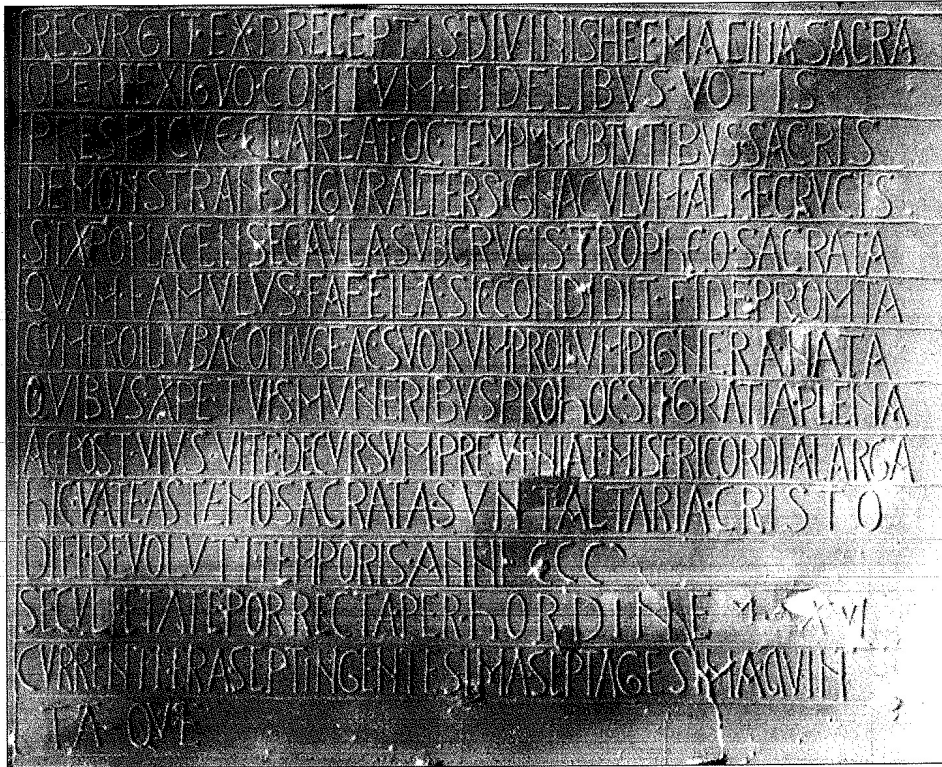 RESVRGIT·EX·PRECEPTIS·DIVINIS HEC MACINA·SACRA
OPERE EXIGVO·COMTVM·FIDELIBVS·VOTIS
PRESPICVE CLAREAT·OC TEMPLM OBTVTIBVS SACRIS
DEMONSTRANS FIGVRALTER SIGNACVLVM ALME CRVCIS
SIT XPO PLACENS EC AVLA SVB CRVCIS·TROPHEO·SACRATA
QVAM·FAMVLVS·FAFEILA·SIC CONDIDIT·FIDE PROMTA
CVM FROILIVBA CONIVGE AC SVORVM PROLVM PIGNERA NATA
QVIBVS XPE TVIS MVNERIBVS PRO HOC SIT GRATIA PLENA
AC POST VIVS VITE DECVRSVM PREVENIAT MISERICORDIA LARGA
HIC VATE ASTEMO SACRATA SVNT ALTARIA CRISTO
DIEI REVOLVTI TEMPORIS ANNI CCC
SECVLI ETATE PORRECTA PER HORDINE
CVRRENTE ERA SEPTINGENTESIMA SEPTAGESIMA QVIN
TA QVE